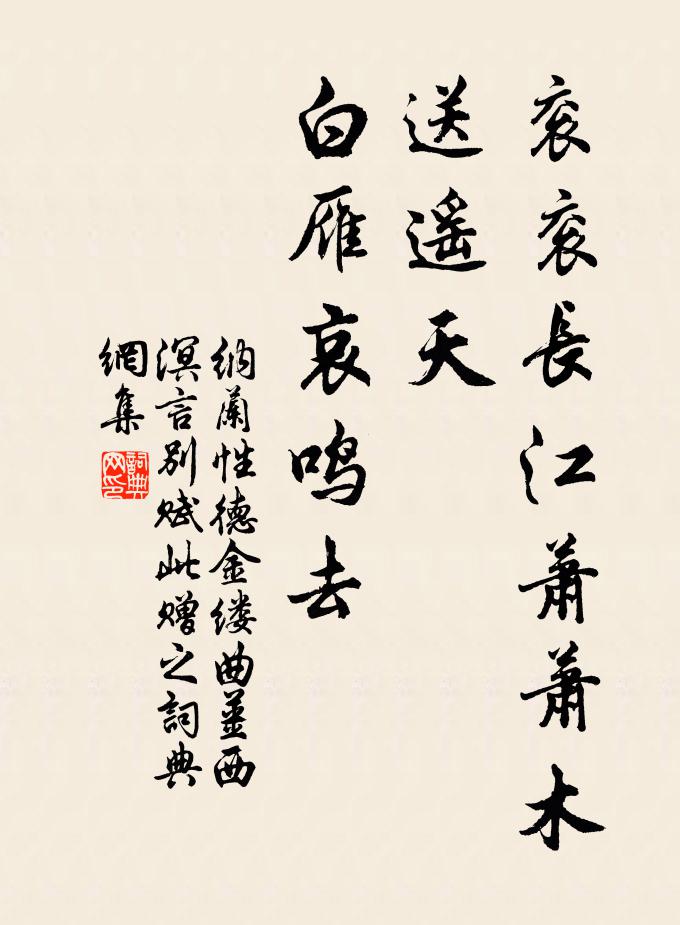 衮衮長江蕭蕭木
送遥天
白雁哀鳴去
納蘭性德金縷曲薑西
溟言别赋此贈之詞典
網集
詞典網印